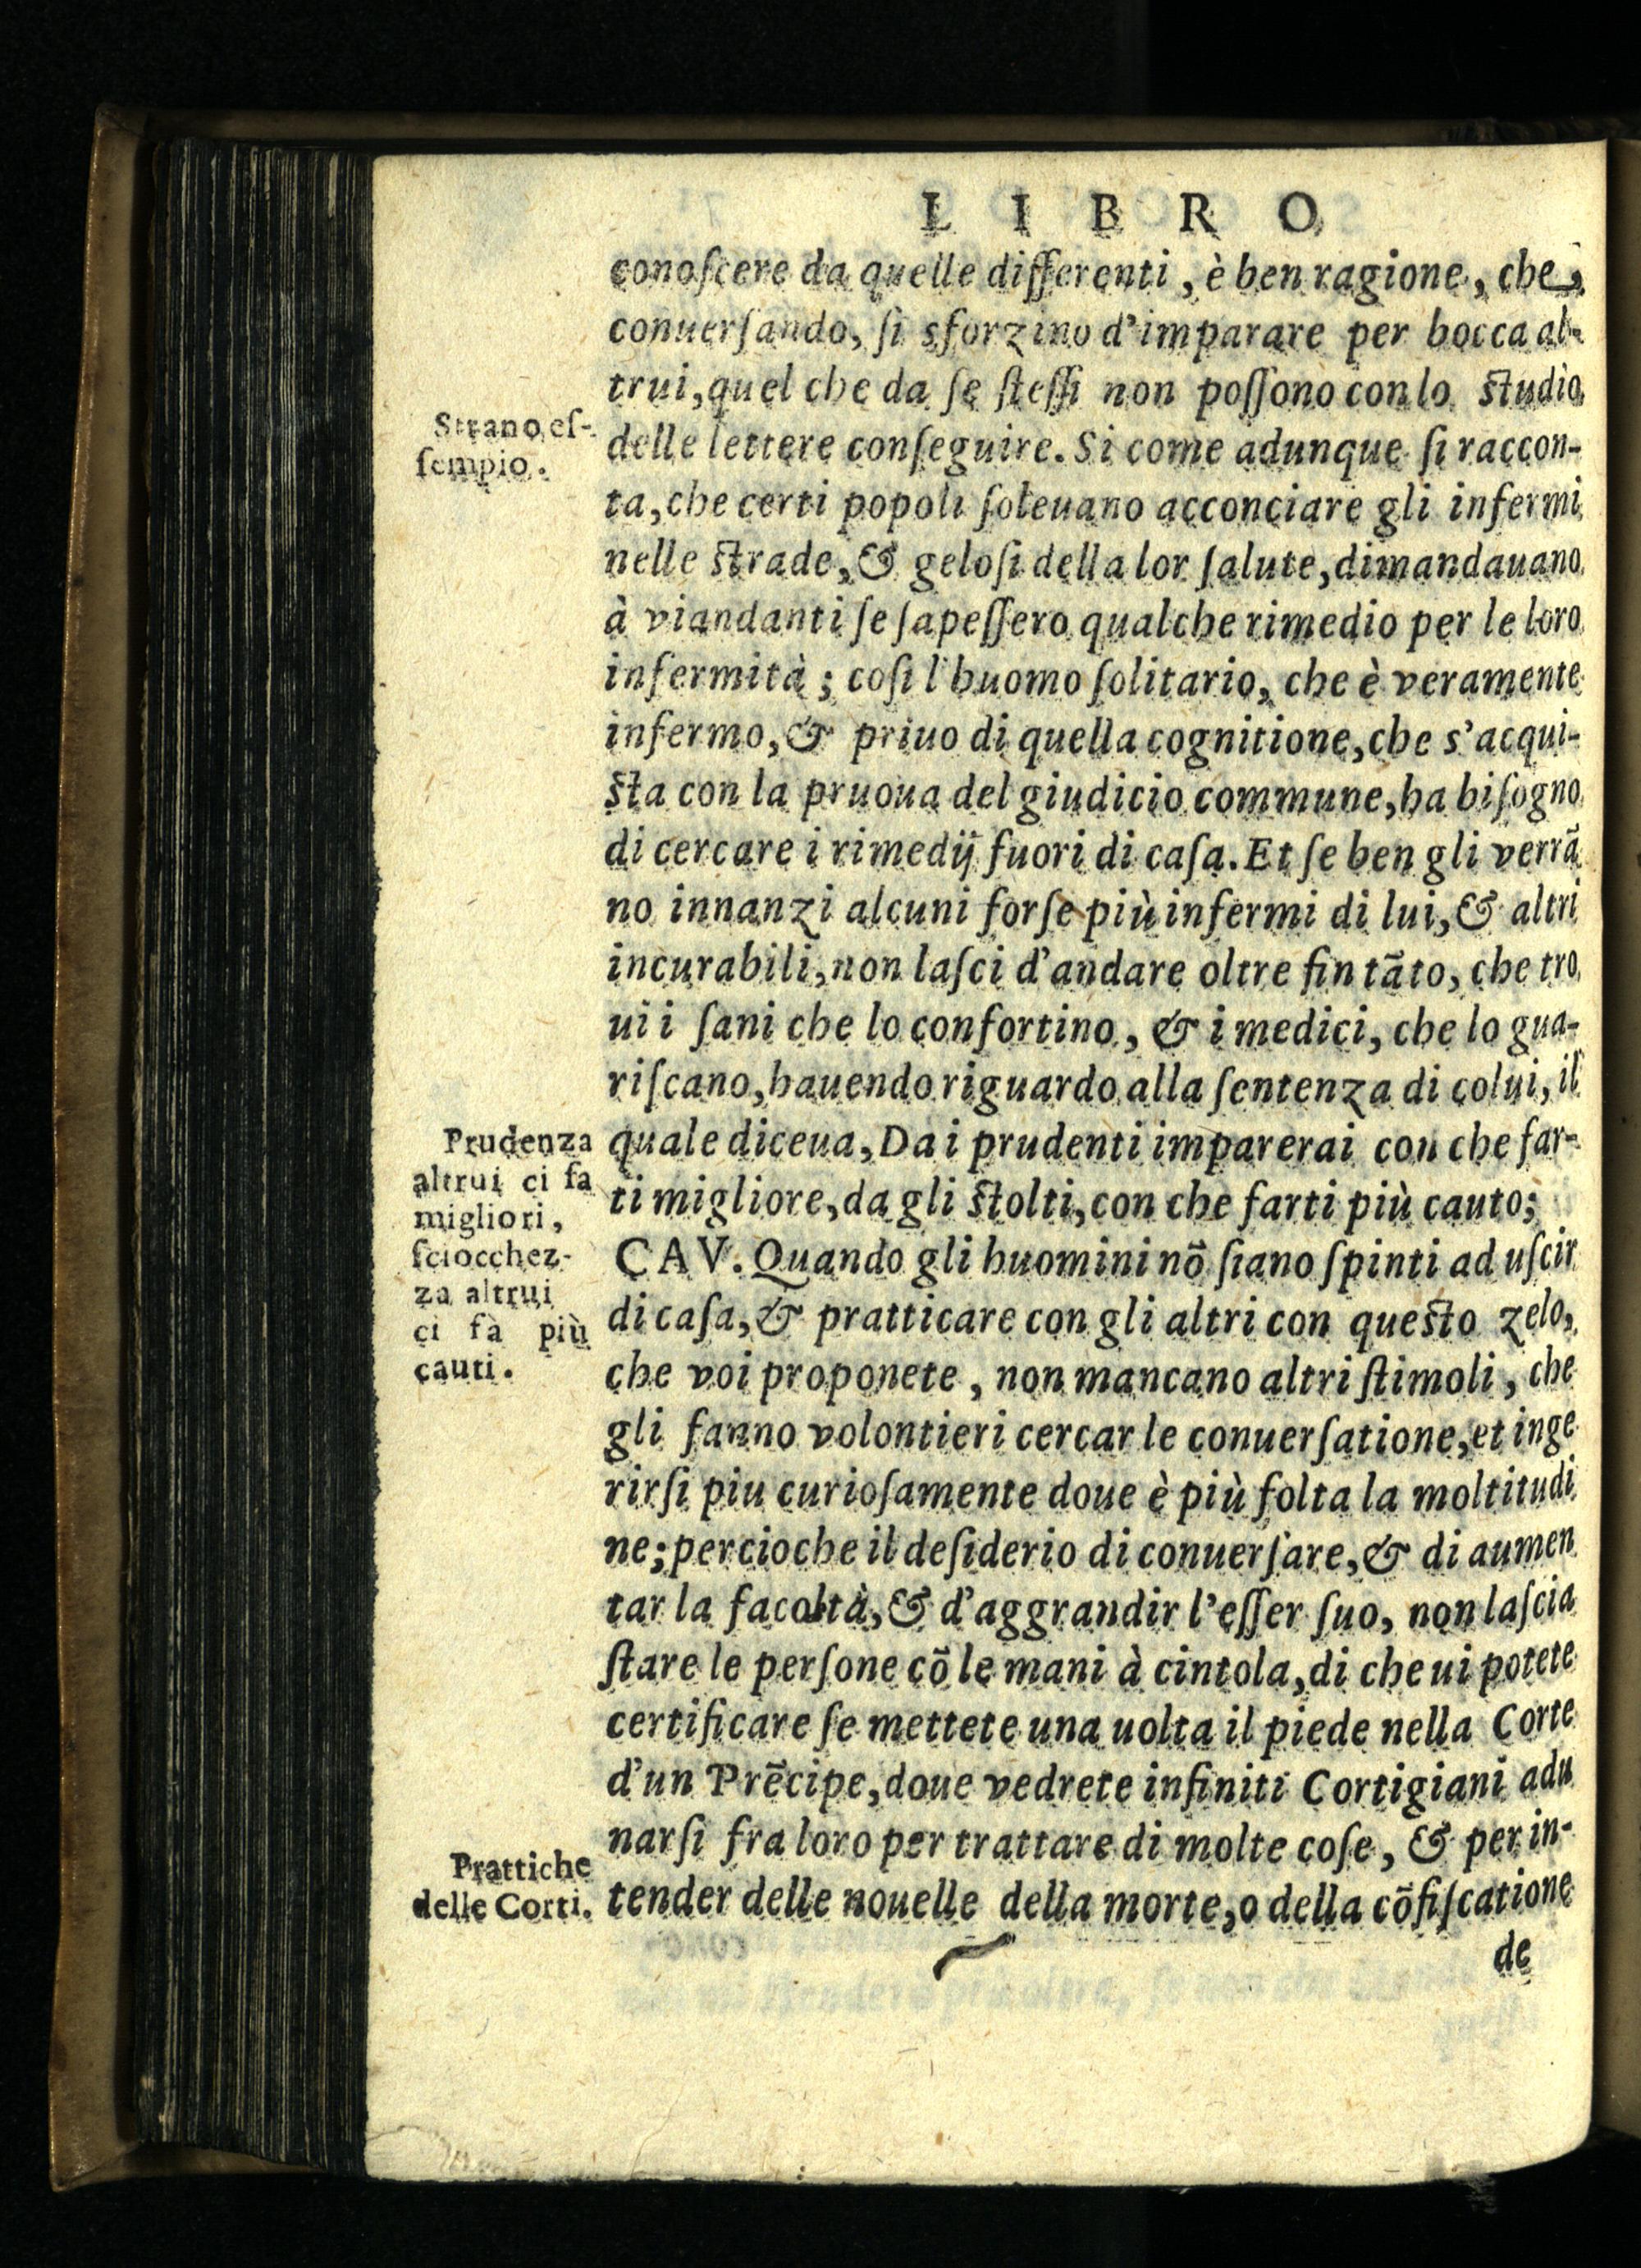 LIBRO
conoſcere da quelle differenti, è ben ragione, che,
conuerſando, ſi sforzino d'imparare per bocca al-
trui, quel che da ſe ſteſſi non poſſono con lo ſtudio
Strano eſ-
ſempio.
delle lettere conſeguire. Si come adunque ſi raccon-
ta, che certi popoli ſoleuano acconciare gli infermi
nelle ſtrade, & geloſi della lor ſalute, dimandauano
à viandanti ſe ſapeſſero qualche rimedio per le loro
infermità; coſi l'huomo ſolitario, che è veramente
infermo, & priuo di quella cognitione, che s'acqui-
ſta con la pruoua del giudicio commune, ha biſogno
di cercare i rimedij fuori di caſa. Et ſe ben gli verrā
no innanzi alcuni forſe più infermi di lui, & altri
incurabili, non laſci d'andare oltre fin tāto, che tro
ui i ſani che lo confortino, & i medici, che lo gua-
riſcano, hauendo riguardo alla ſentenza di colui, il
Prudenza
altrui ci fa
migliori,
ſciocchez-
za altrui
ci fà più
cauti.
quale diceua, Da i prudenti imparerai con che far-
ti migliore, da gli ſtolti, con che farti più cauto;
CAV. Quando gli huomini nō ſiano ſpinti ad uſcir
di caſa, & pratticare con gli altri con queſto zelo,
che voi proponete, non mancano altri ſtimoli, che
gli fanno volontieri cercar le conuerſatione, et inge
rirſi piu curioſamente doue è più folta la moltitudi
ne; percioche il deſiderio di conuerſare, & di aumen
tar la facoltà, & d'aggrandir l'eſſer ſuo, non laſcia
ſtare le perſone cō le mani à cintola, di che ui potete
certificare ſe mettete una uolta il piede nella Corte
d'un Prēcipe, doue vedrete infiniti Cortigiani adu
narſi fra loro per trattare di molte coſe, & per in-
Prattiche
delle Corti.
tender delle nouelle della morte, o della cōfiſcatione
de